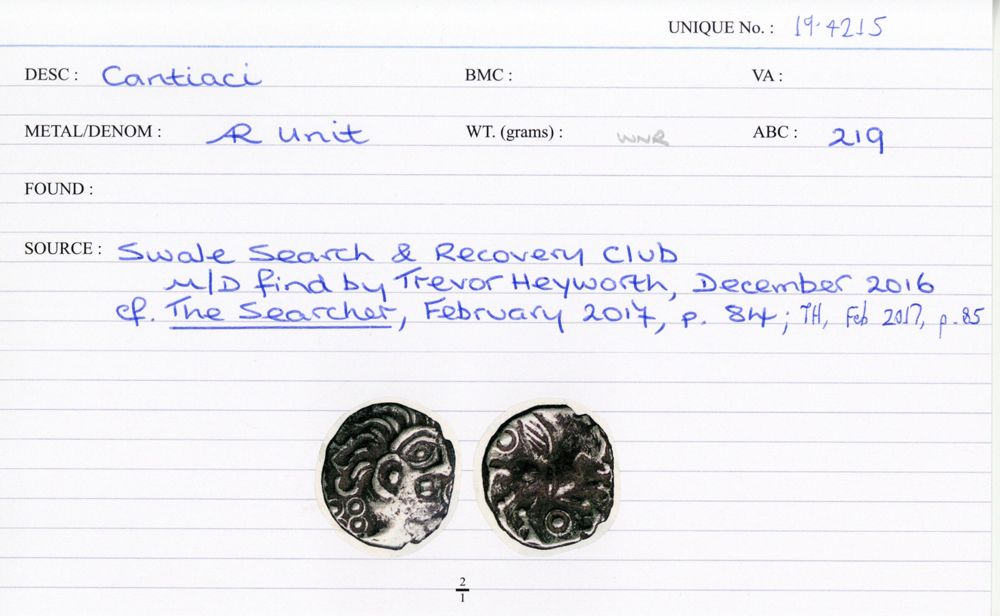 UNIQUE No. : 19.4215
DESC : Cantiaci BMC : VA :
METAL/DENOM : AR Unit WT. (grams) : WNR ABC : 219
FOUND :
SOURCE : Swale Search & Recovery Club
M/D find by Trevor Heyworth, December 2016
cf. The Searcher, February 2017, p. 84; TH, Feb 2017, p.85
2
1